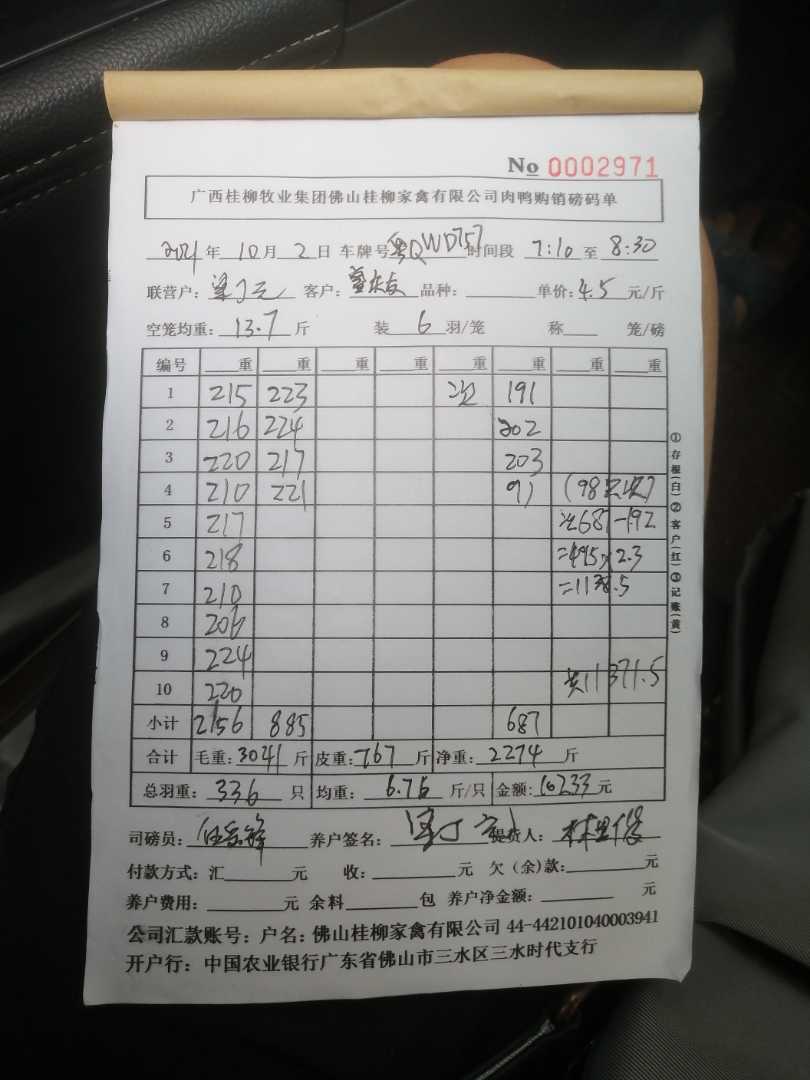 No 0002971
广西桂柳牧业集团佛山桂柳家禽有限公司肉鸭购销磅码单
2021年 10月 2日 车牌号 粤QWD757 时间段 7:10 至 8:30
联营户: 客户: 品种: 单价: 4.5 元/斤
空笼均重: 13.7 斤 装 6 羽/笼 称 笼/磅
编号 重 重 重 重 重 重 重 重
1 215 223 191
2 216 224 202
3 220 217 203
4 210 221 91 (98
5 217 687-192
6 218 =495×2.3
7 210 =1138.5
8 206
9 224
10 220 共11371.5
小计 2156 885 687
合计 毛重: 3041 斤 皮重: 767 斤 净重: 2274 斤
总羽重: 336 只 均重: 6.76 斤/只 金额: 10233 元
司磅员: 养户签名: 提货人:
付款方式: 汇 元 收: 元 欠(余)款: 元
养户费用: 元 余料 包 养户净金额: 元
公司汇款账号: 户名: 佛山桂柳家禽有限公司 44-442101040003941
开户行: 中国农业银行广东省佛山市三水区三水时代支行
①存根(白)②客户(红)③记账(黄)